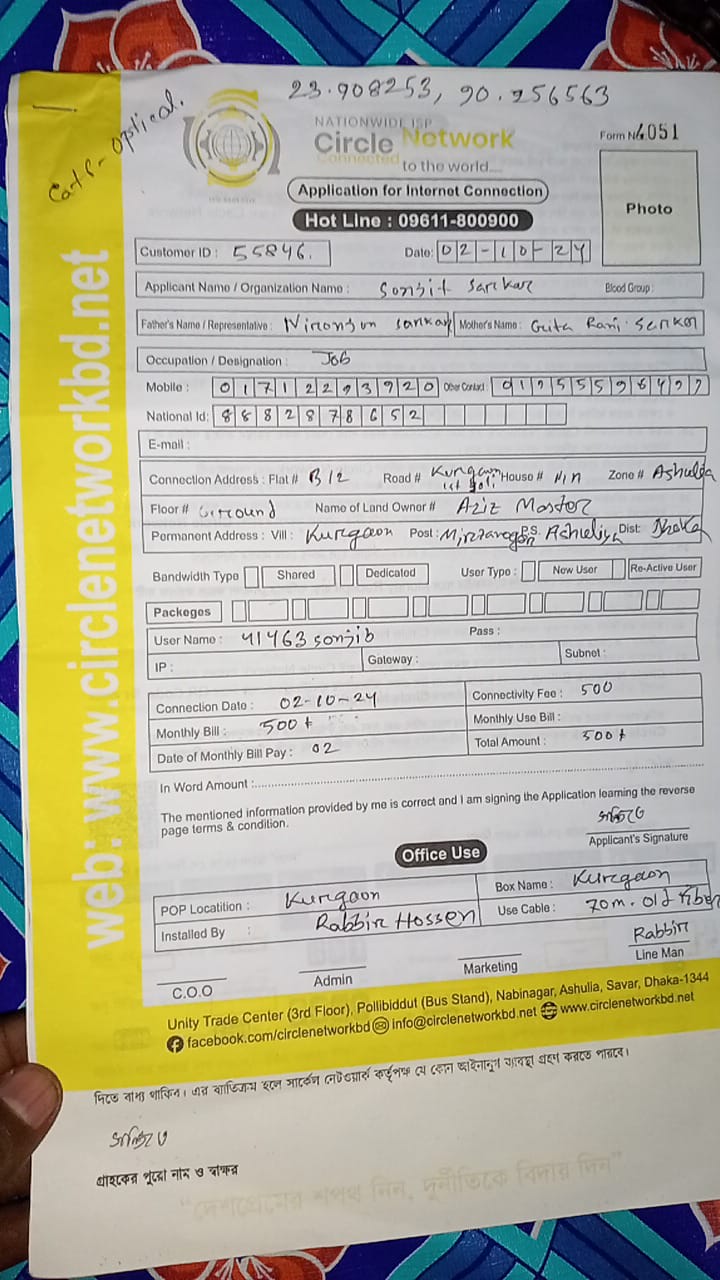 23.908253, 90.256563
Cat6 - Optical.
NATIONWIDE ISP
Circle Network
Connected to the world....
Form No 4051
Application for Internet Connection
Photo
Hot Line : 09611-800900
Customer ID : 55846. Date: 02-10-24
Applicant Name / Organization Name : Sonjit Sarkar Blood Group :
Father's Name / Representative : Nironjon Sarkar Mother's Name : Gita Rani Sarkar
Occupation / Designation : Job
Mobile : 01712293920 Other Contact :
National Id: 8882878652
E-mail :
Connection Address : Flat # B12 Road # Kurgaon 1st goli House # N/n Zone # Ashulia
Floor # Ground Name of Land Owner # Aziz Master
Permanent Address : Vill : Kurgaon Post : Mirzanagar P.S. Ashuliya Dist: Dhaka
Bandwidth Type Shared Dedicated User Type : New User Re-Active User
Packages
User Name : 41463sonjib Pass :
IP : Gateway : Subnet :
Connection Date : 02-10-24 Connectivity Fee : 500
Monthly Bill : 500 t Monthly Use Bill :
Date of Monthly Bill Pay : 02 Total Amount : 500 t
In Word Amount :
The mentioned information provided by me is correct and I am signing the Application learning the reverse
page terms & condition.
Applicant's Signature
Office Use
POP Locatition : Kurgaon Box Name : Kurgaon
Installed By : Rabbir Hossen Use Cable : 70m. old fiber
Rabbir
C.O.O Admin Marketing Line Man
Unity Trade Center (3rd Floor), Pollibiddut (Bus Stand), Nabinagar, Ashulia, Savar, Dhaka-1344
facebook.com/circlenetworkbd info@circlenetworkbd.net www.circlenetworkbd.net
web: www.circlenetworkbd.net
দিতে বাধ্য থাকিব। এর ব্যতিক্রম হলে সার্কেল নেটওয়ার্ক কর্তৃপক্ষ যে কোন আইনানুগ ব্যবস্থা গ্রহণ করতে পারবে।
গ্রাহকের পুরো নাম ও স্বাক্ষর
"দেশপ্রেমের শপথ নিন, দুর্নীতিকে বিদায় দিন"